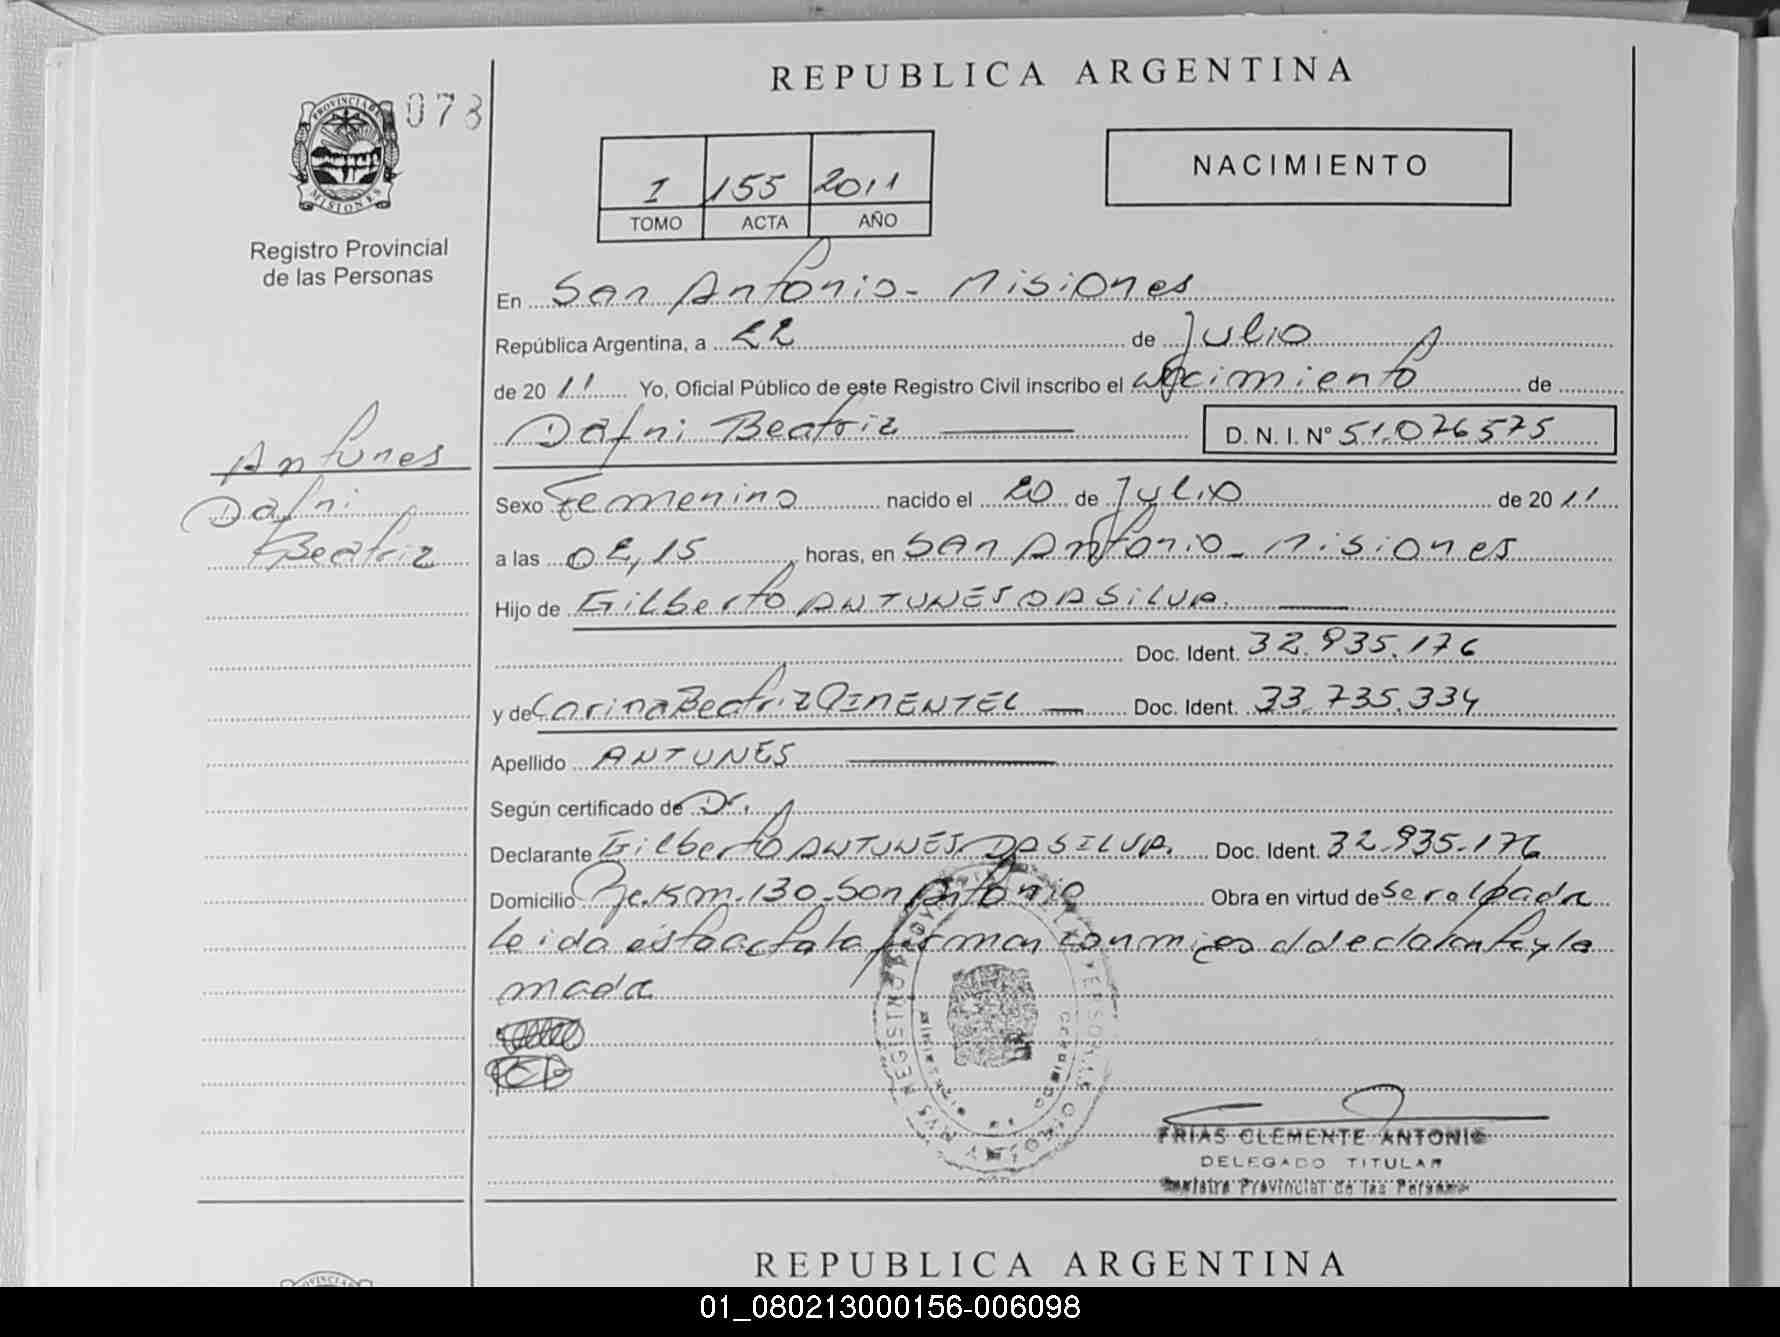 REPUBLICA ARGENTINA
073
PROVINCIA DE
MISIONES
Registro Provincial
de las Personas
I 155 2011
TOMO ACTA AÑO
NACIMIENTO
En San Antonio - Misiones
República Argentina, a 22 de Julio
de 20 11 Yo, Oficial Público de este Registro Civil inscribo el Nacimiento de
Dafni Beatriz D. N. I. Nº 51.076575
Antunes
Dafni
Beatriz
Sexo Femenino nacido el 20 de Julio de 20 11
a las 02,15 horas, en San Antonio - Misiones
Hijo de Gilberto ANTUNES DA SILVA.
Doc. Ident. 32.935.176
y de Carina Beatriz PIMENTEL Doc. Ident. 33.735.334
Apellido ANTUNES
Según certificado de Dr.
Declarante Gilberto ANTUNES DA SILVA. Doc. Ident. 32.935.176
Domicilio Km. 130 - San Antonio Obra en virtud de ser
leida esta acta la firman conmigo el declarante y la
madre
FRIAS CLEMENTE ANTONIO
DELEGADO TITULAR
Registro Provincial de las Personas
REPUBLICA ARGENTINA
01_080213000156-006098